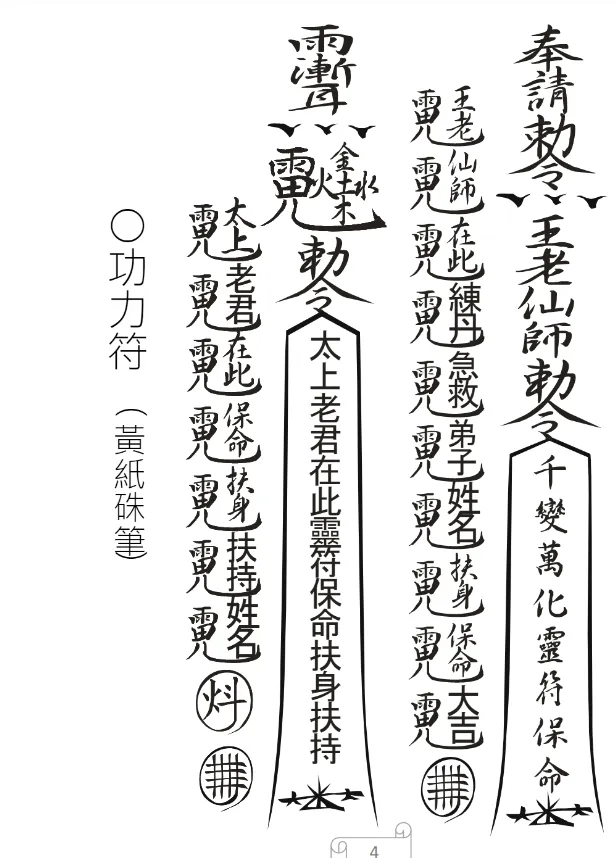 奉請勅令
王老仙師勅令
千變萬化靈符保命
王老
仙師
在此
練丹
急救
弟子
姓名
扶身
保命
大吉
金
火土水
木
勅令
太上老君在此靈符保命扶身扶持
太上
老君
在此
保命
扶身
扶持
姓名
〇功力符（黃紙硃筆）
4